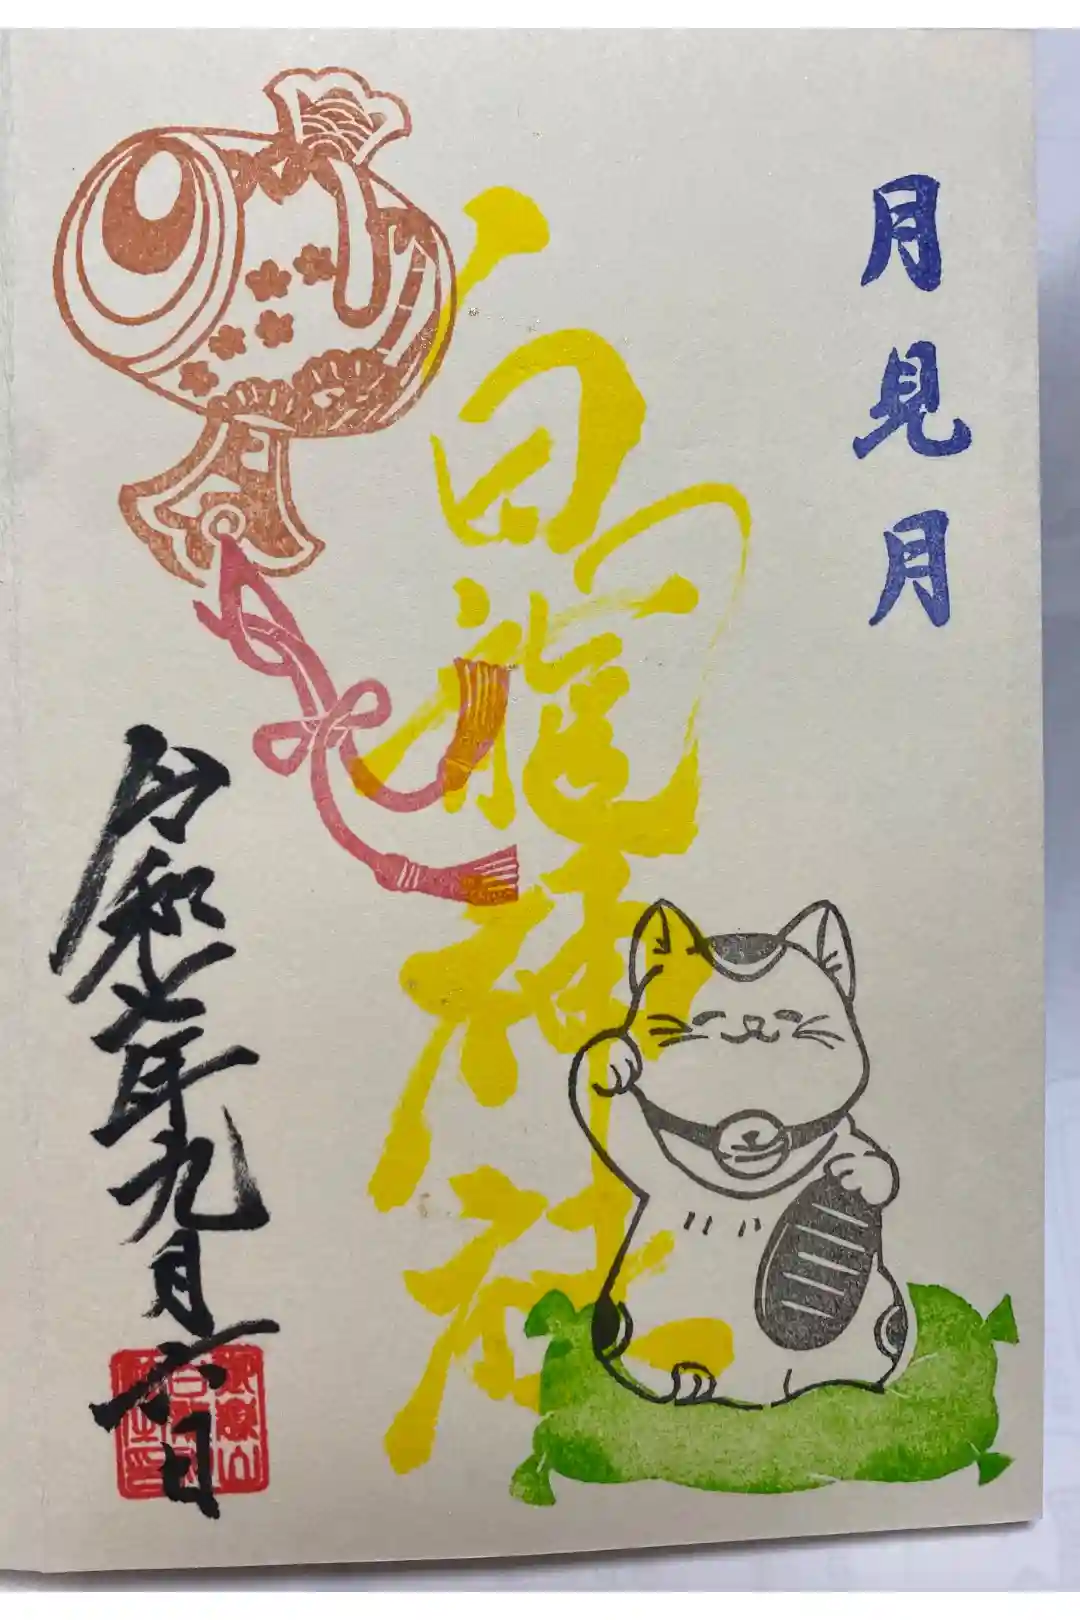 月見月
白龍神社
令和七年九月六日